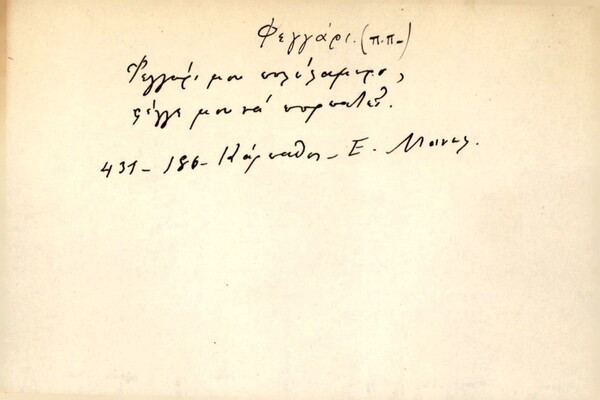 Φεγγάρι. (π.π.)
Φεγγάρι μου
φέγγε μου νά πορπατῶ.
431 - 186 - Κάρπαθος - Ε. Μανωλ.